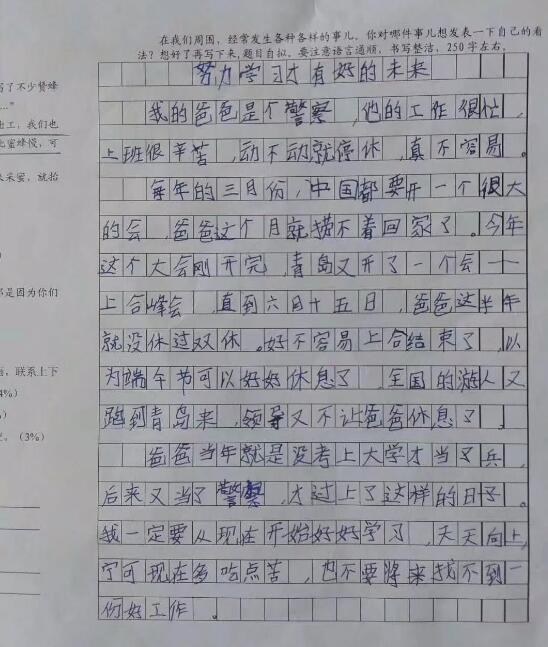 在我们周围，经常发生各种各样的事儿。你对哪件事儿想发表一下自己的看
法？想好了再写下来,题目自拟。要注意语言通顺，书写整洁，250字左右。
努力学习才有好的未来
我的爸爸是个警察，他的工作很忙，
上班很辛苦，动不动就停休，真不容易。
每年的三月份，中国都要开一个很大
的会，爸爸这个月就捞不着回家了。今年
这个大会刚开完，青岛又开了一个会——
上合峰会，直到六月十五日，爸爸这半年
就没休过双休。好不容易上合结束了，以
为端午节可以好好休息了，全国的游人又
跑到青岛来，领导又不让爸爸休息了。
爸爸当年就是没考上大学才当了兵，
后来又当了警察，才过上了这样的日子。
我一定要从现在开始好好学习，天天向上，
宁可现在多吃点苦，也不要将来找不到一
份好工作。
写了不少赞蜂
"
出工，我们也
比蜜蜂慢，可
采蜜，就抬
）
那是因为你们
，联系上下
4%）
）
。（3%）